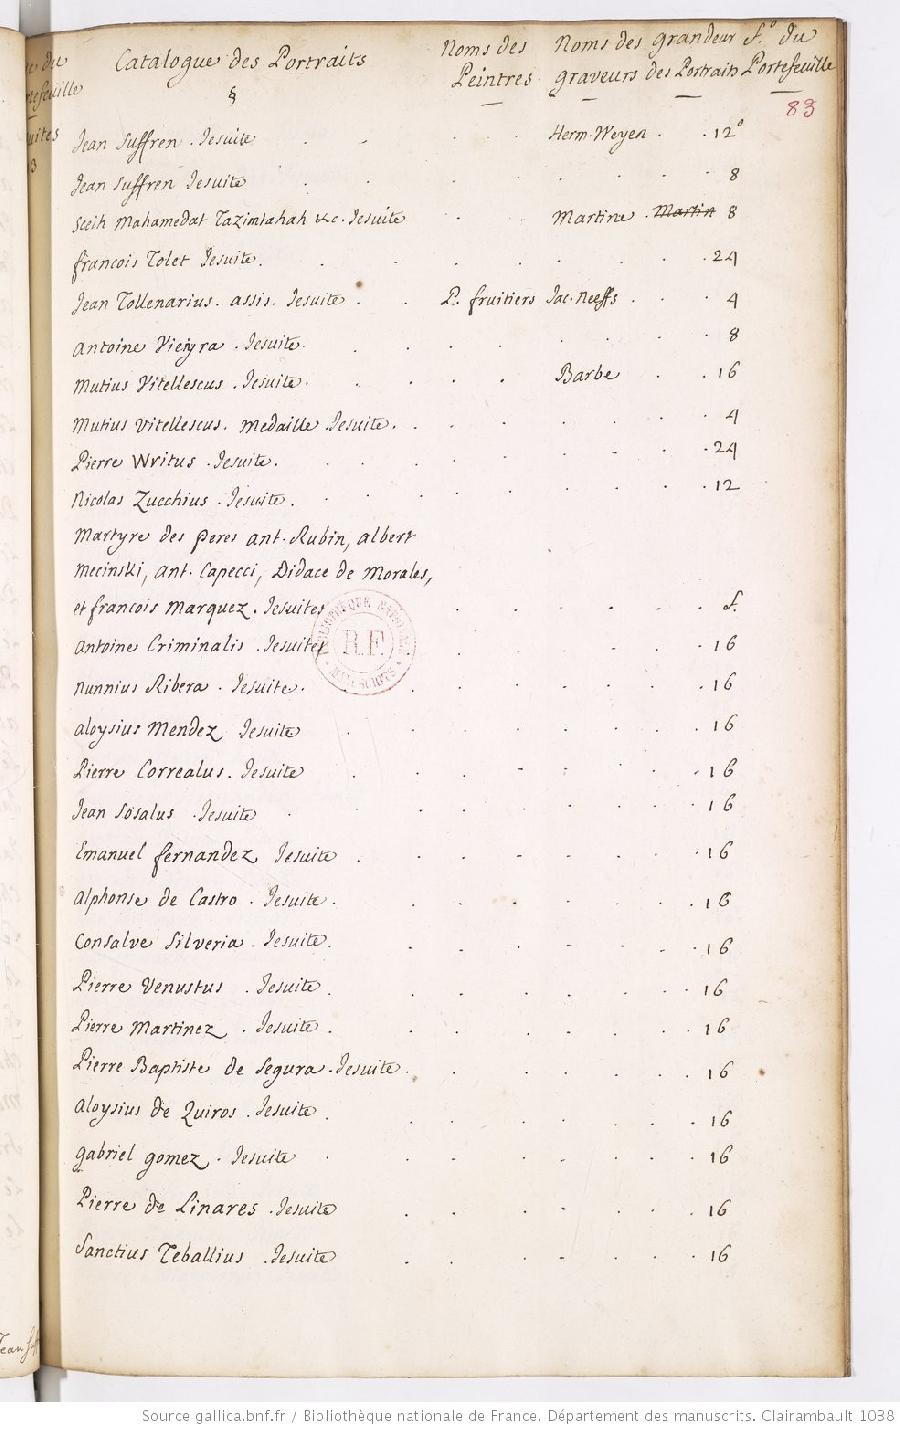 Catalogue des Portraits | Noms des Peintres | Noms des graveurs | grandeur des Portraits | f.° du Portefeuille
§
83
Jean Suffren . Jesuite . . . . Herm. Weyen . . 12°
Jean Suffren Jesuite . . . . 8
Sceih Mahamedat Tazimiahah &c. Jesuite . . Martine . Martin 8
francois Tolet Jesuite . . . . 24
Jean Tollenarius . assis . Jesuite . . P. fruitiers Jac. neeffs . . . 4
antoine Vieyra . Jesuite . . . 8
Mutius Vitellescus . Jesuite . . . . Barbe . . 16
Mutius Vitellescus . medaille Jesuite . . . . 4
Pierre Writus . Jesuite . . . . 24
Nicolas Zucchius . Jesuite . . . . 12
Martyre des peres ant. Rubin, albert
Mecinski, ant. Capecci, Didace de Morales,
et francois Marquez . Jesuites . . . . f.
antoine Criminalis . Jesuite . . . . 16
nunnius Ribera . Jesuite . . . . 16
aloysius Mendez Jesuite . . . . 16
Pierre Correalus . Jesuite . . . . 16
Jean Sosalus . Jesuite . . . . 16
Emanuel fernandez Jesuite . . . . 16
alphonse de Castro . Jesuite . . . . 16
Consalve Silveria . Jesuite . . . . 16
Pierre Venustus . Jesuite . . . . 16
Pierre Martinez . Jesuite . . . . 16
Pierre Baptiste de Segura . Jesuite . . . . 16
aloysius de Quiros . Jesuite . . . . 16
gabriel gomez . Jesuite . . . . 16
Pierre de Linares . Jesuite . . . . 16
Sanctius Teballius . Jesuite . . . . 16
R.F.
Source gallica.bnf.fr / Bibliothèque nationale de France. Département des manuscrits. Clairambault 1038